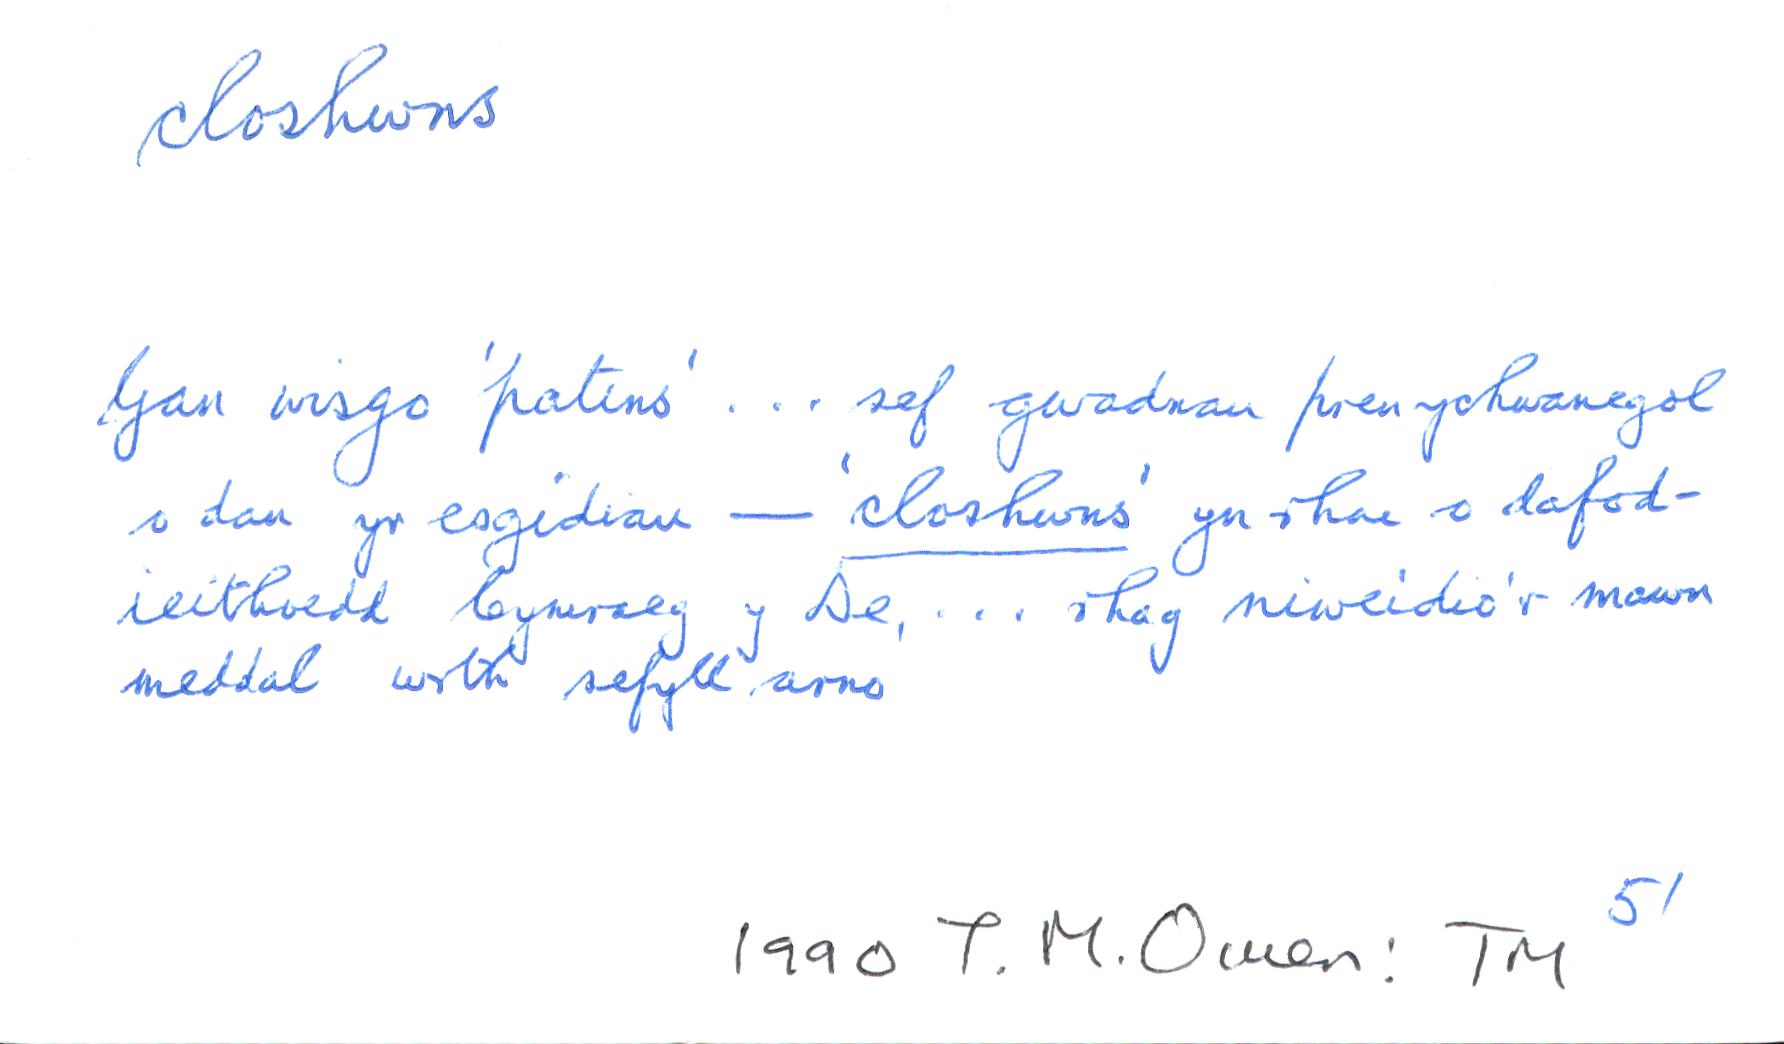 closhwns
Gan wisgo 'patens' ... sef gwadnau pren ychwanegol
o dan yr esgidiau — 'closhwns' yn rhai o dafod-
ieithoedd Cymraeg y De, ... rhag niweidio'r mawn
meddal wrth sefyll arno
1990 T. M. Owen: TM 51